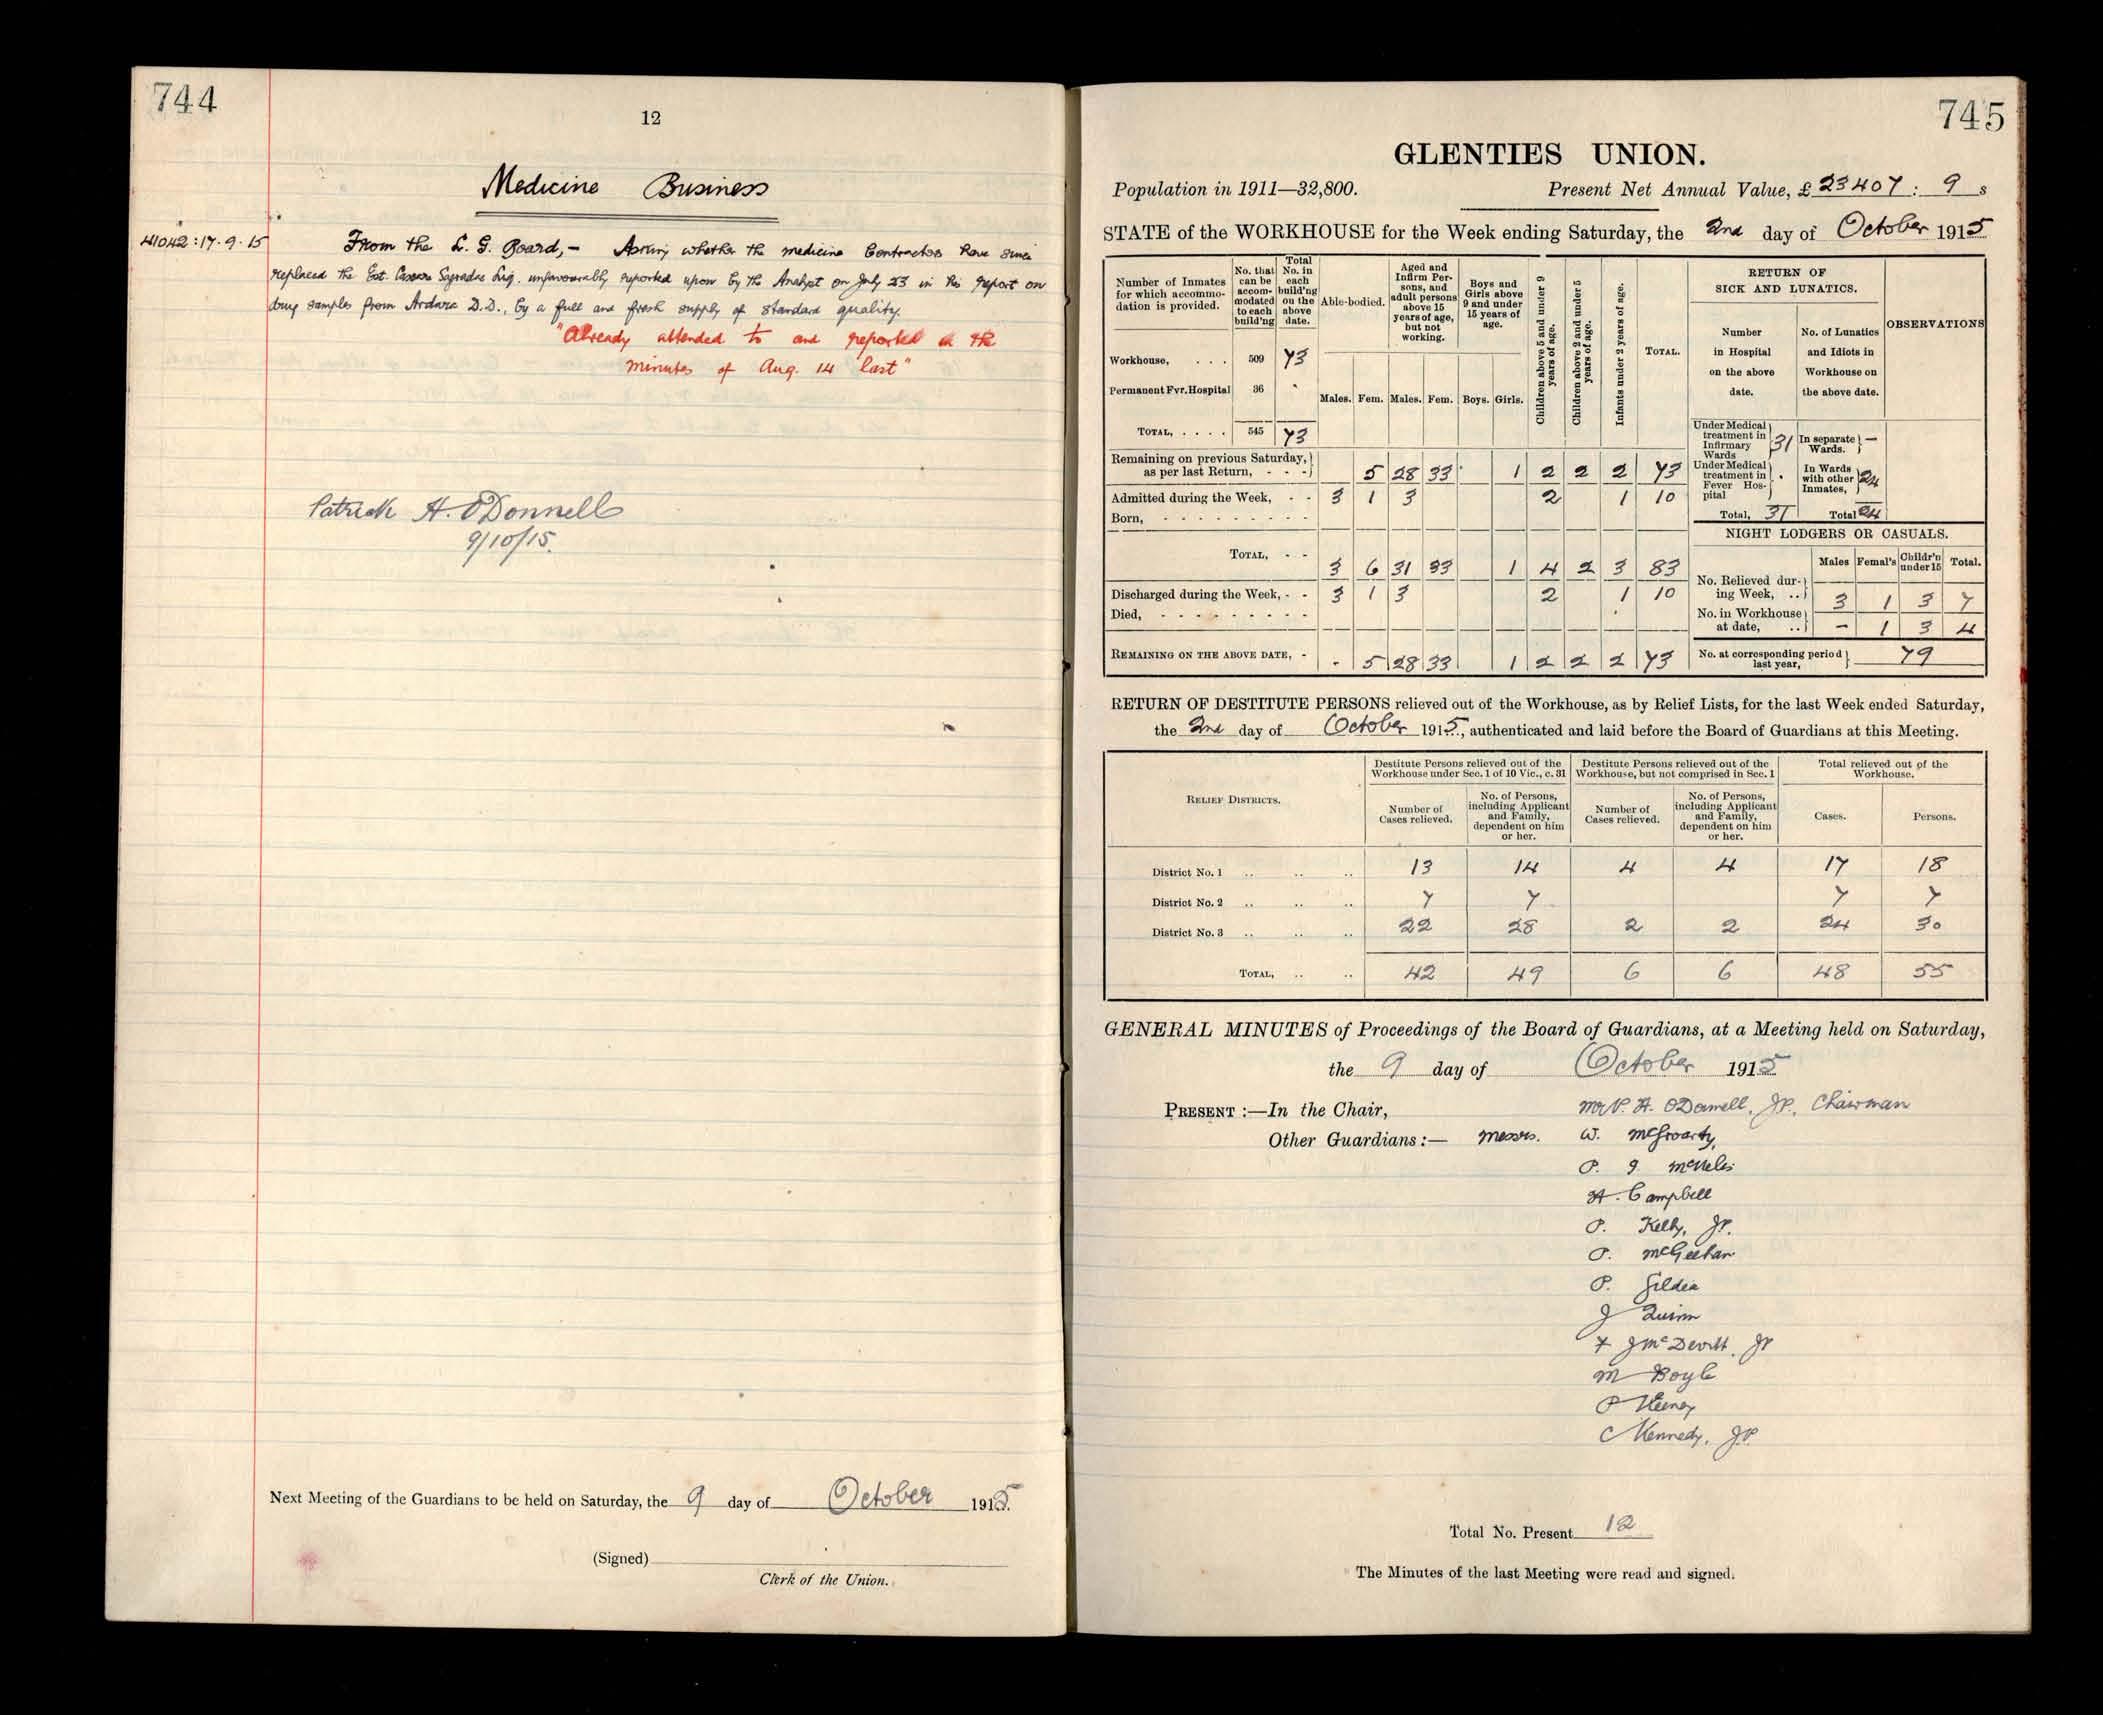 744
12
Medicine Business
41042:17.9.15 From the L. G. Board,- Asking whether the medicine Contractors have since
replaced the Ext. Cascara Sagradae Liq. unfavourably reported upon by the Analyst on July 23 in his report on
drug samples from Ardara D.D., by a full and fresh supply of standard quality.
"Already attended to and reported in the
minutes of Aug. 14 last"
Patrick H. O'Donnell
9/10/15.
Next Meeting of the Guardians to be held on Saturday, the 9 day of October 1915.
(Signed)
Clerk of the Union.
745
GLENTIES UNION.
Population in 1911—32,800. Present Net Annual Value, £23407 : 9 s
STATE of the WORKHOUSE for the Week ending Saturday, the 2nd day of October 1915
Number of Inmates for which accommodation is provided. No. that can be accommodated to each build'ng Total No. in each build'ng on the above date. Able-bodied. Aged and Infirm Persons, and adult persons above 15 years of age, but not working. Boys and Girls above 9 and under 15 years of age. Children above 5 and under 9 years of age. Children above 2 and under 5 years of age. Infants under 2 years of age. TOTAL. RETURN OF SICK AND LUNATICS. OBSERVATIONS
Number in Hospital on the above date. No. of Lunatics and Idiots in Workhouse on the above date.
Workhouse, . . . 509 73
Permanent Fvr. Hospital 36
Males. Fem. Males. Fem. Boys. Girls.
TOTAL, . . . . 545 73
Under Medical treatment in Infirmary Wards 31 In separate Wards. —
Under Medical treatment in Fever Hospital . In Wards with other Inmates, 24
Total, 31 Total 24
Remaining on previous Saturday, as per last Return, - - - 5 28 33 1 2 2 2 73
Admitted during the Week, - - 3 1 3 2 1 10
Born, - - - - - - - - -
TOTAL, - - 3 6 31 33 1 4 2 3 83
Discharged during the Week, - - 3 1 3 2 1 10
Died, - - - - - - - - -
REMAINING ON THE ABOVE DATE, - - 5 28 33 1 2 2 2 73
NIGHT LODGERS OR CASUALS.
Males Femal's Childr'n under 15 Total.
No. Relieved during Week, .. 3 1 3 7
No. in Workhouse at date, .. - 1 3 4
No. at corresponding period last year, 79
RETURN OF DESTITUTE PERSONS relieved out of the Workhouse, as by Relief Lists, for the last Week ended Saturday,
the 2nd day of October 1915, authenticated and laid before the Board of Guardians at this Meeting.
RELIEF DISTRICTS. Destitute Persons relieved out of the Workhouse under Sec. 1 of 10 Vic., c. 31 Destitute Persons relieved out of the Workhouse, but not comprised in Sec. 1 Total relieved out of the Workhouse.
Number of Cases relieved. No. of Persons, including Applicant and Family, dependent on him or her. Number of Cases relieved. No. of Persons, including Applicant and Family, dependent on him or her. Cases. Persons.
District No. 1 .. .. .. 13 14 4 4 17 18
District No. 2 .. .. .. 7 7 7 7
District No. 3 .. .. .. 22 28 2 2 24 30
TOTAL, .. .. 42 49 6 6 48 55
GENERAL MINUTES of Proceedings of the Board of Guardians, at a Meeting held on Saturday,
the 9 day of October 1915
PRESENT :—In the Chair, Mr P. H. O'Donnell, JP. Chairman
Other Guardians :— Messrs. W. McGroarty,
P. J. McNelis
H. Campbell
P. Kelly, JP.
P. McGeehan
P. Gildea
J Quinn
F J McDevitt, JP
M Boyle
P Keeney
C Kennedy, JP.
Total No. Present 12
The Minutes of the last Meeting were read and signed.